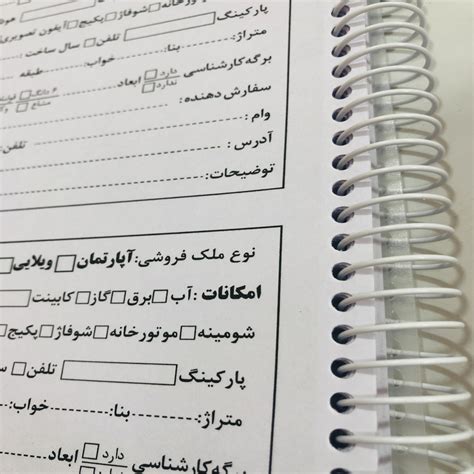 موتورخانه □ شوفاژ □ پکیج □ آیفون تصویری
پارکینگ تلفن □ سال ساخت
متراژ: بنا: خواب: طبقه
برگه کارشناسی دارد □ ابعاد ۶ دانگ □
ندارد □ مشاع □
سفارش دهنده:
وام:
آدرس: تلفن:
توضیحات:
نوع ملک فروشی: آپارتمان □ ویلایی □
امکانات: آب □ برق □ گاز □ کابینت
شومینه □ موتورخانه □ شوفاژ □ پکیج □
پارکینگ تلفن □
متراژ: بنا: خواب:
برگه کارشناسی دارد □ ابعاد